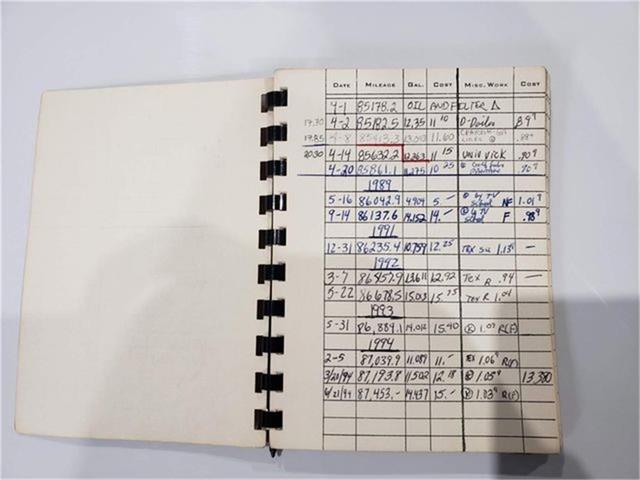 DATE MILEAGE GAL. COST MISC. WORK COST
4-1 85178.2 OIL AND FILTER Δ
17.30 4-2 85182.5 12.35 11 10 .89 9
17.85 4-8 85413.3 11.60 .88 9
20.30 4-14 85632.2 11 15 .90 9
4-20 85861.1 11.275 10 25 .90 9
1989
5-16 86042.9 4.904 5 — NF 1.01 9
9-14 86137.6 14.152 14. — F .98 9
1991
12-31 86235.4 10.759 12.25 TEX SU 1.13 9 —
1992
3-7 86457.9 13.611 12.92 TEX R .94 —
5-22 86678.5 15.03 15.75 TEX R 1.04
1993
5-31 86,884.1 14.012 15.40 1.09 R(F)
1994
2-5 87,039.9 11.089 11.- 1.06 9
3/20/94 87,193.8 11.502 12.18 1.05 9 13,380
4/21/94 87,453.- 14.437 15.- 1.03 9 R(F)